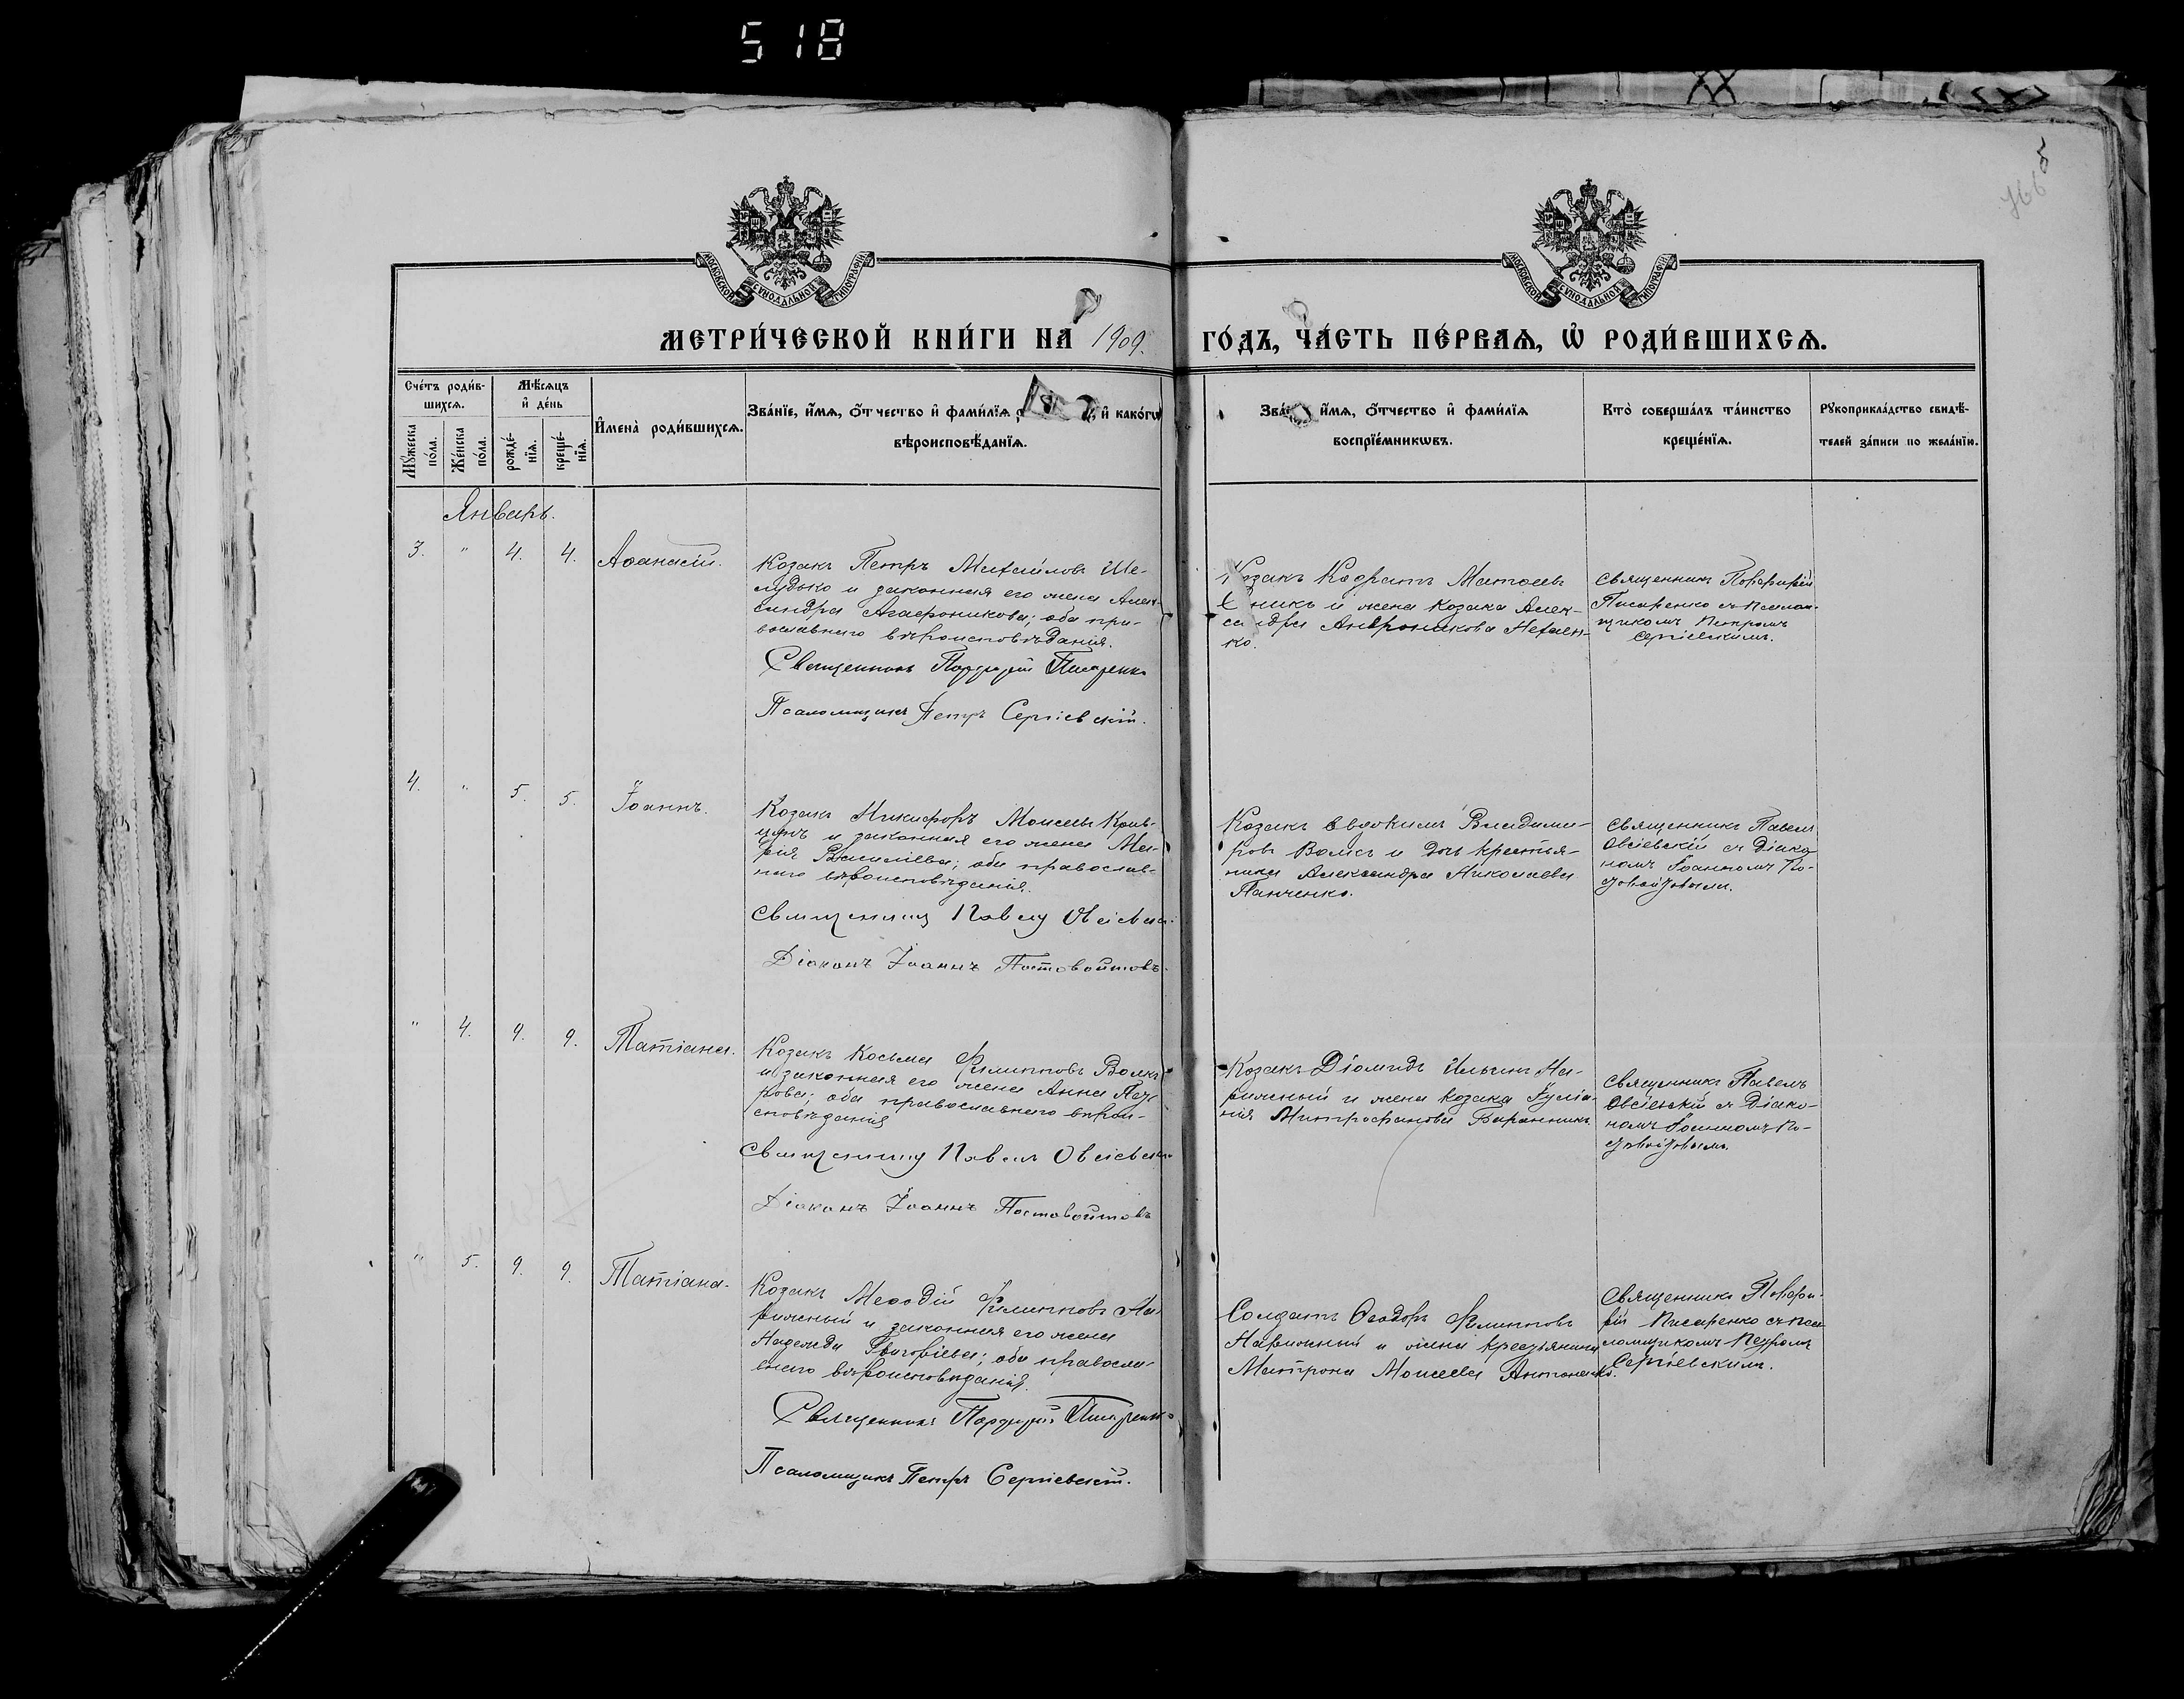 518
5
МОСКОВСКОЙ СѴНОДАЛЬНОЙ ТИПОГРАФІИ
МОСКОВСКОЙ СѴНОДАЛЬНОЙ ТИПОГРАФІИ
МЕТРИ́ЧЕСКОЙ КНИ́ГИ НА 1909. ГО́ДЪ, ЧА́СТЬ ПЕ́РВАѦ, Ѡ҆ РОДИ́ВШИХСѦ.
Сче́тъ роди́в-
шихсѧ.
Мꙋ́жеска
по́ла.
Же́нска
по́ла.
Мѣ́сѧцъ
и҆ де́нь
рожде́-
нїѧ.
креще́-
нїѧ.
И҆мена̀ роди́вшихсѧ.
Зва́нїе, и҆́мѧ, ѻ҆́тчество и҆ фами́лїѧ и҆ како́гѡ
вѣроисповѣ́данїѧ.
и҆́мѧ, ѻ҆́тчество и҆ фами́лїѧ
воспрїе́мникѡвъ.
Кто̀ соверша́лъ та́инство
креще́нїѧ.
Рꙋкоприкла́дство свидѣ́-
телей за́писи по жела́нїю.
Январь.
3. " 4. 4. Аѳанасій.
Козакъ Петръ Михайловъ Ше-
лудько и законная его жена Алек-
сандра Агафоникова; оба пра-
вославнаго вѣроисповѣданія.
Священникъ Порфирій Писаренко
Псаломщикъ Петръ Сергіевскій.
Козакъ Кодратъ Матѳеевъ
и жена козака Алек-
сандра Андроникова Нехаен-
ко.
Священникъ Порфирій
Писаренко съ псалом-
щикомъ Петромъ
Сергіевскимъ.
4. " 5. 5. Іоаннъ.
Козакъ Никифоръ Моисеевъ
и законная его жена Ма-
рія Васильева; оба православ-
наго вѣроисповѣданія.
Священникъ Павелъ Овсіевскій
Діаконъ Іоаннъ Постовойтовъ.
Козакъ Евдокимъ Владими-
ровъ Волкъ и дочь крестья-
нина Александра Николаева
Панченко.
Священникъ Павелъ
Овсіевскій съ Діако-
номъ Іоанномъ По-
стовойтовымъ.
" 4. 9. 9. Татіана.
Козакъ Косьма Филипповъ Волкъ
и законная его жена Анна
оба православнаго вѣрои-
сповѣданія
Священникъ Павелъ Овсіевскій
Діаконъ Іоаннъ Постовойтовъ
Козакъ Діомидъ Ильинъ На-
рижный и жена козака Іуліа-
нія Митрофанова Баранникъ.
Священникъ Павелъ
Овсіевскій съ Діако-
номъ Іоанномъ По-
стовойтовымъ.
" 5. 9. 9. Татіана.
Козакъ Меѳодій Филипповъ На-
рижный и законная его жена
Надежда Григоріева; оба правосла-
внаго вѣроисповѣданія.
Священникъ Порфирій Писаренко
Псаломщикъ Петръ Сергіевскій.
Солдатъ Ѳеодоръ Филипповъ
Нарижный и жена крестьянина
Матрона Моисеева Антоненко.
Священникъ Порфи-
рій Писаренко съ пса-
ломщикомъ Петромъ
Сергіевскимъ.